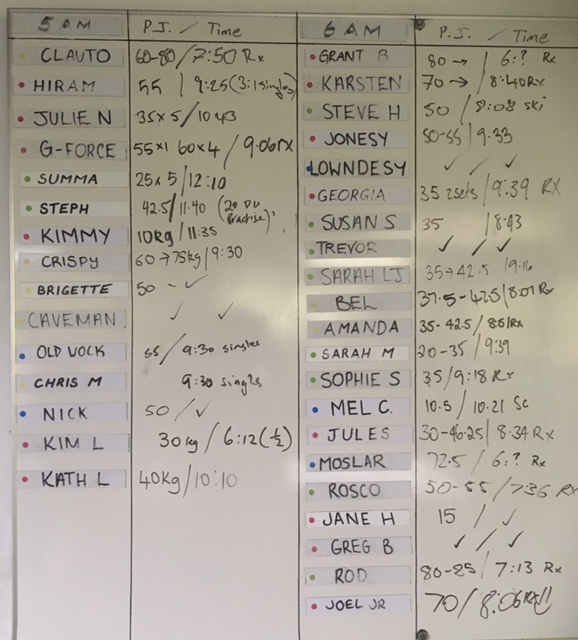 5 AM P.J. / Time
CLAUTO 60-80 / 7:50 Rx
HIRAM 55 / 9:25 (3:1 singles)
JULIE N 35x5 / 10:43
G-FORCE 55x1 60x4 / 9.06 RX
SUMMA 25x5 / 12:10
STEPH 42.5 / 11:40 (20 DU Practise)
KIMMY 10kg / 11:35
CRISPY 60→75kg / 9:30
BRIGETTE 50 - ✓
CAVEMAN ✓ ✓
OLD VOCK 55 / 9:30 singles
CHRIS M 9:30 singles
NICK 50 / ✓
KIM L 30kg / 6:12 (1/2)
KATH L 40Kg / 10:10
6 AM P.J. / Time
GRANT B 80 → / 6:? Rx
KARSTEN 70 → / 8:40 RX
STEVE H 50 / 8:08 ski
JONESY 50-55 / 9.33
LOWNDESY ✓ / ✓
GEORGIA 35 2sets / 9:39 RX
SUSAN S 35 / 8:43
TREVOR ✓ / ✓
SARAH LJ 35→42.5 / 9.16
BEL 37.5-42.5 / 8:07 Rx
AMANDA 35-42.5 / Rx
SARAH M 20-35 / 9:39
SOPHIE S 35 / 9:18 Rx
MEL C. 10.5 / 10.21 Sc
JULES 30-46.25 / 8:34 RX
MOSLAR 72.5 / 6:? Rx
ROSCO 50-55 / 7:36 RX
JANE H 15 / ✓
GREG B ✓ / ✓
ROD 80-25 / 7:13 Rx
JOEL JR 70 / 8:06